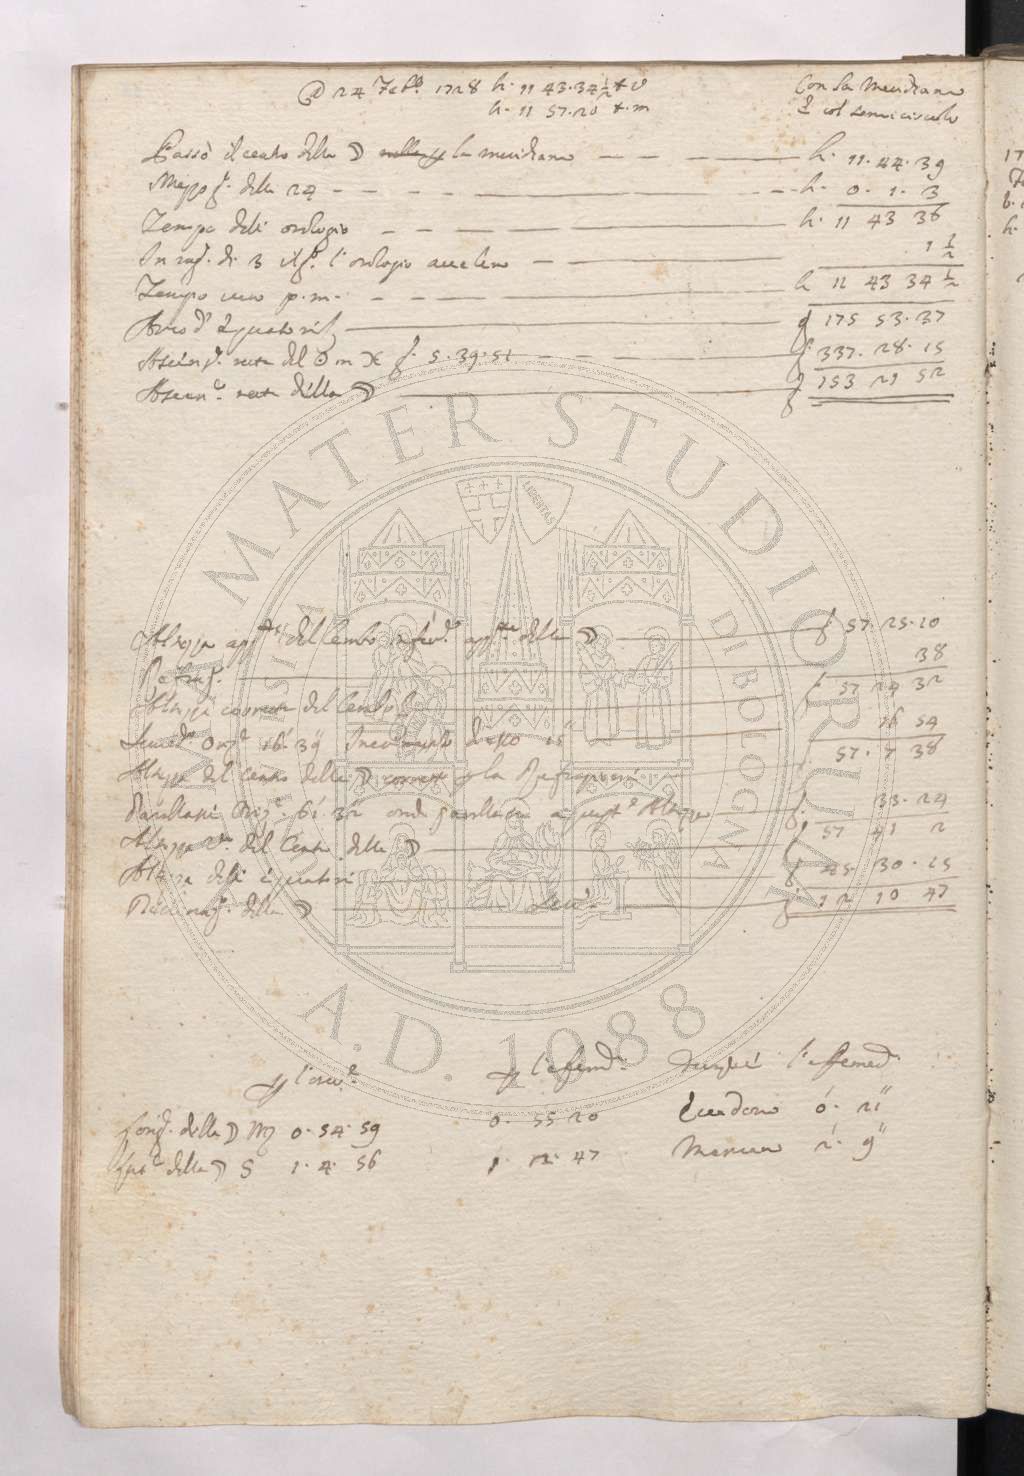 24 Feb.º 1728 h. 11 43.34 ½ t. v
h. 11 57.20 t. m
Con la Meridiana
e col semicircolo
Passò il centro della ☽ la meridiana h. 11. 44. 39
Mezzo g. della 24 h. 0. 1. 3
Tempo dell' orologio h. 11 43 36
In rag. di 3 l'orologio accelera 1 ½
Tempo vero p. m. h 11 43 34 ½
Arco d' Equatore g 175 53. 37
Ascens. retta del ☉ in ♓ g. 5. 39. 51 g. 337. 28. 15
Ascen. retta della ☽ g 153 21 52
Altezza app. del lembo della ☽ g 57. 25. 10
Refraz. 38
Altezza corretta del lembo g 57 24 32
Semid. Oriz. 16. 39 15 16 54
57. 7 38
Altezza del centro della ☽ corretta
Parallasse Oriz. 61. 32 onde parallasse a quest' Altezza 33. 24
Altezza del Centro della ☽ g 57 41 2
Altezza dell' equatore g 45 30. 15
Declinaz. della ☽ Sett. g. 12 10 47
p l'oss. p l'effemd. Dunque l'effemed.
Long. della ☽ ♍ 0. 54. 59 0. 55 20 Eccedono 0. 21"
Lat. della ☽ S 1. 4. 56 1. 12. 47 Mancano 2. 9"
MATER STUDIORUM
UNIVERSITÀ DI BOLOGNA
LIBERTAS
A.D. 1088